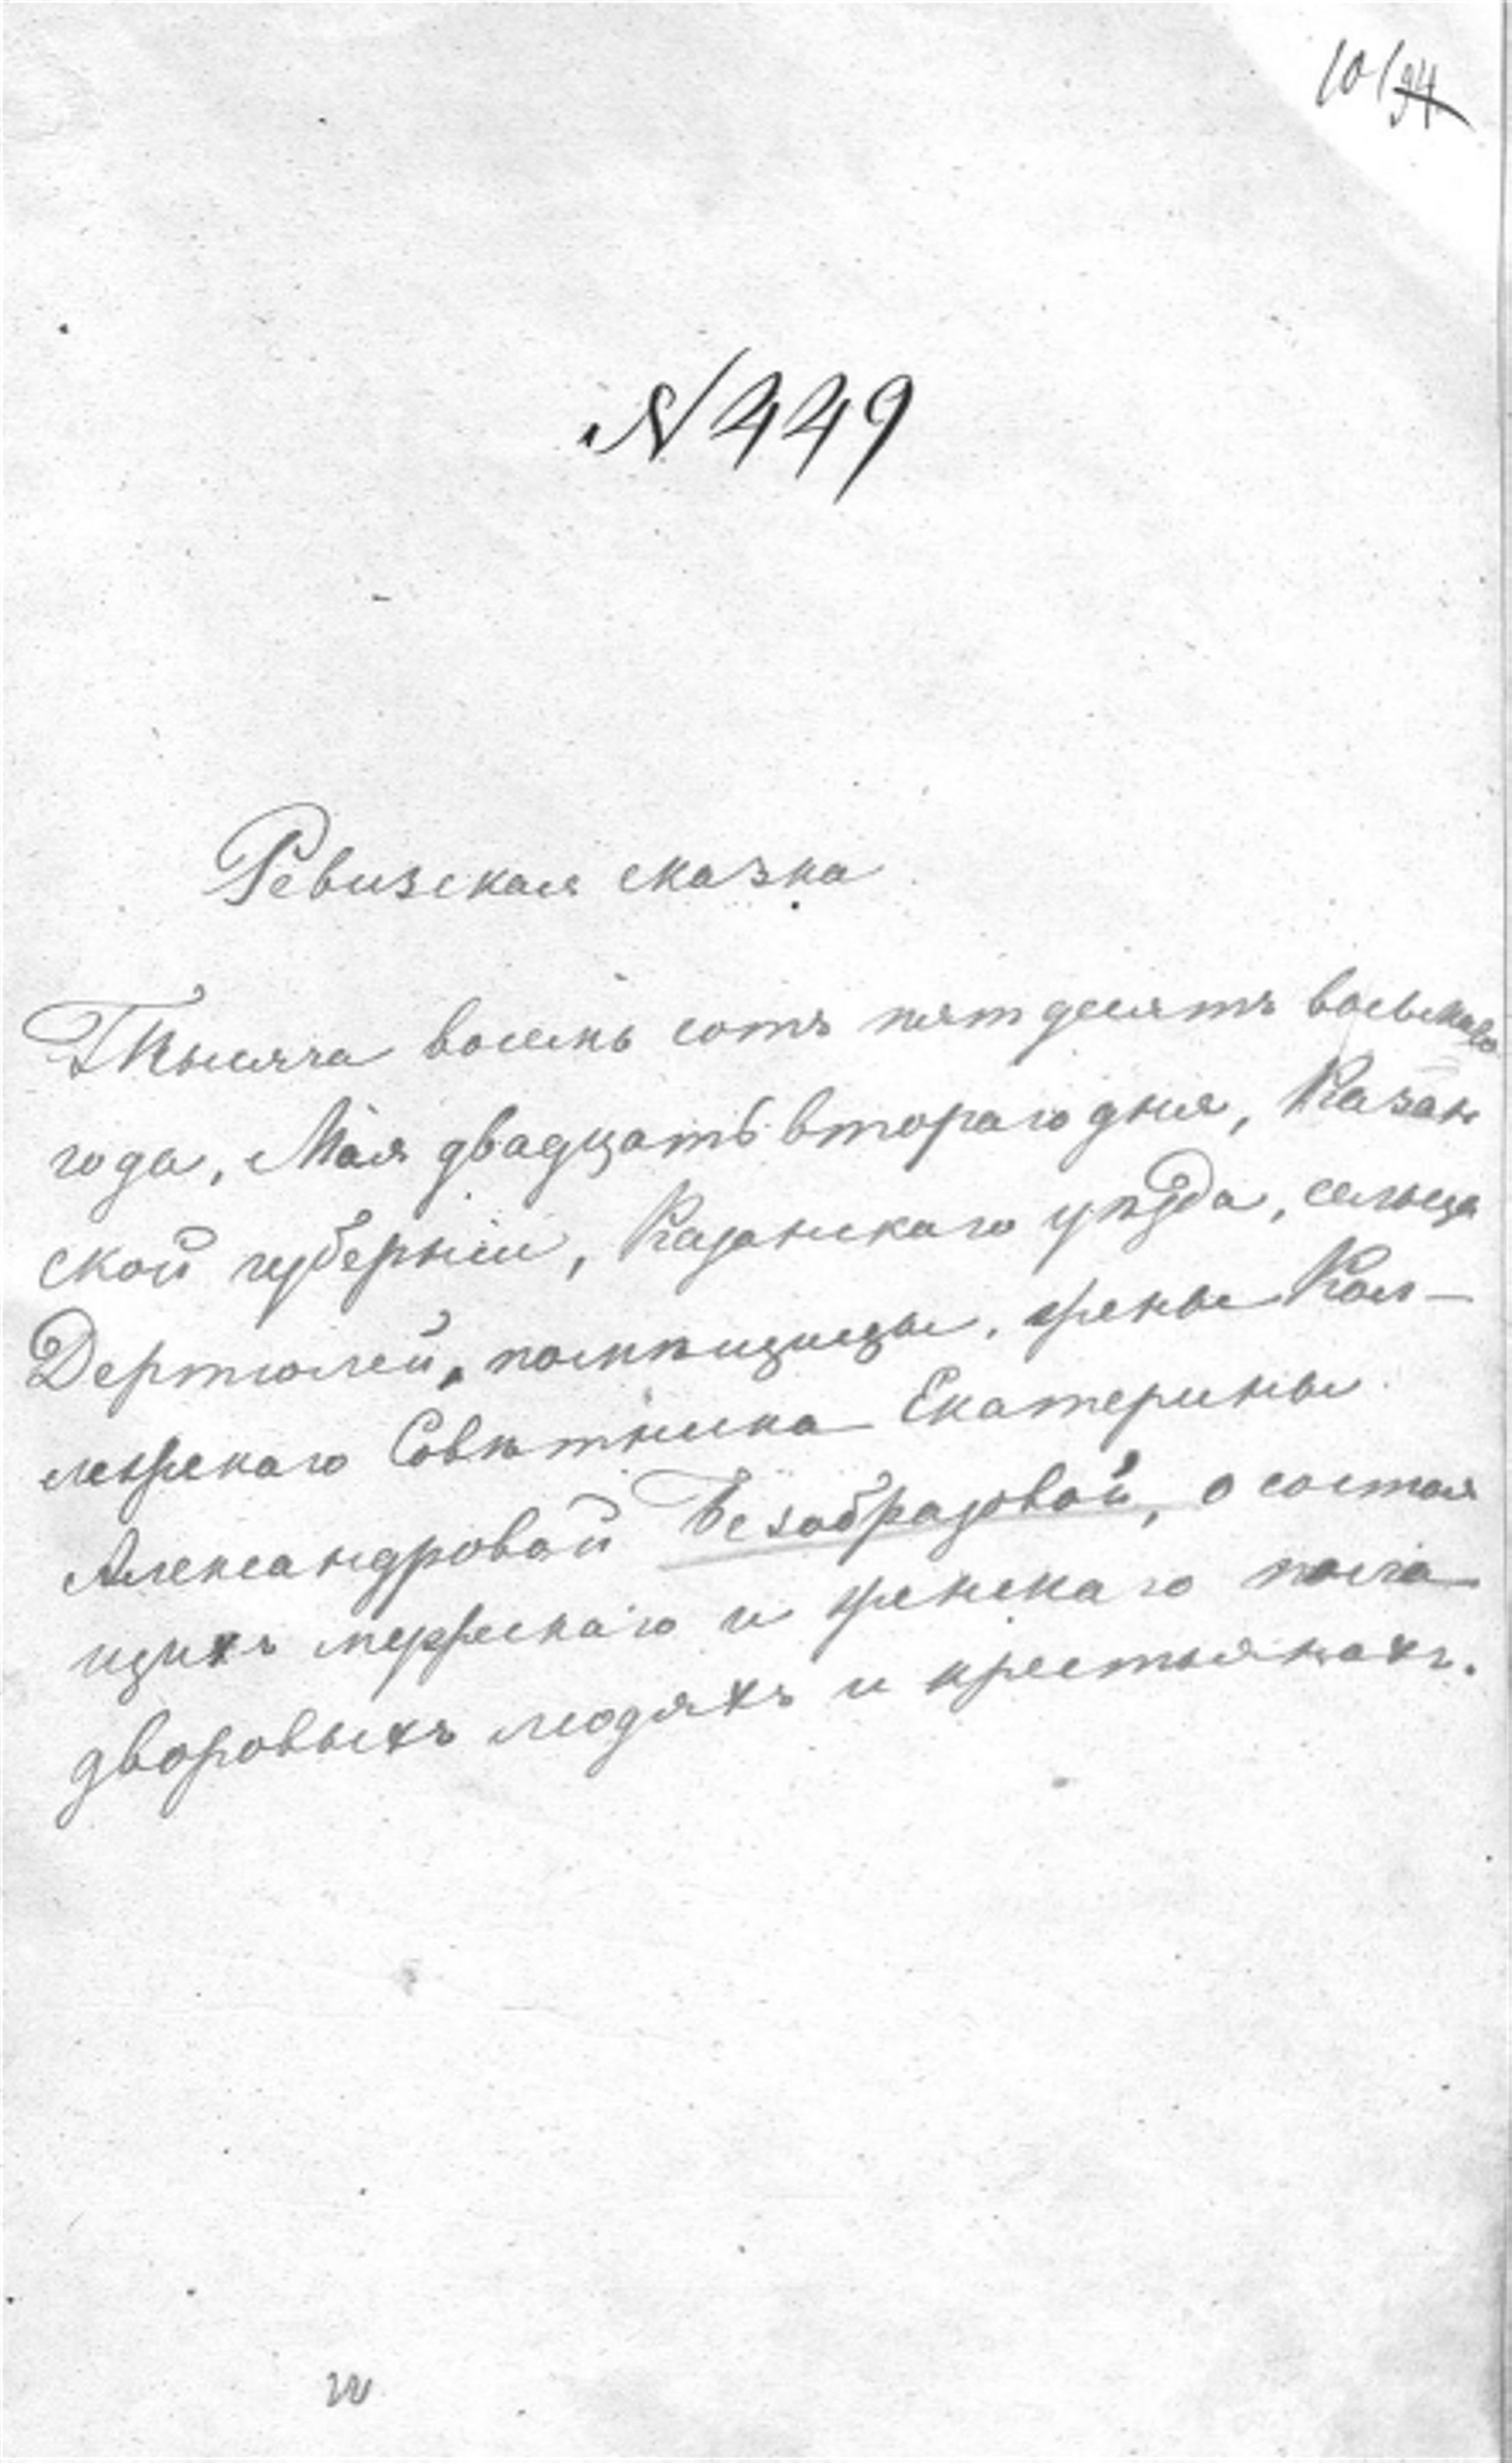 101 94
№ 449
Ревизская сказка
Тысяча восемь сотъ пятдесятъ восьмаго
года, Мая двадцать втораго дня, Казан
ской губерніи, Казанскаго уѣзда, сельца
Дертюлей, помѣщицы, жены Кол-
лежскаго Совѣтника Екатерины
Александровой Безобразовой, о состоя
щихъ мужескаго и женскаго пола
дворовыхъ людяхъ и крестьянахъ.